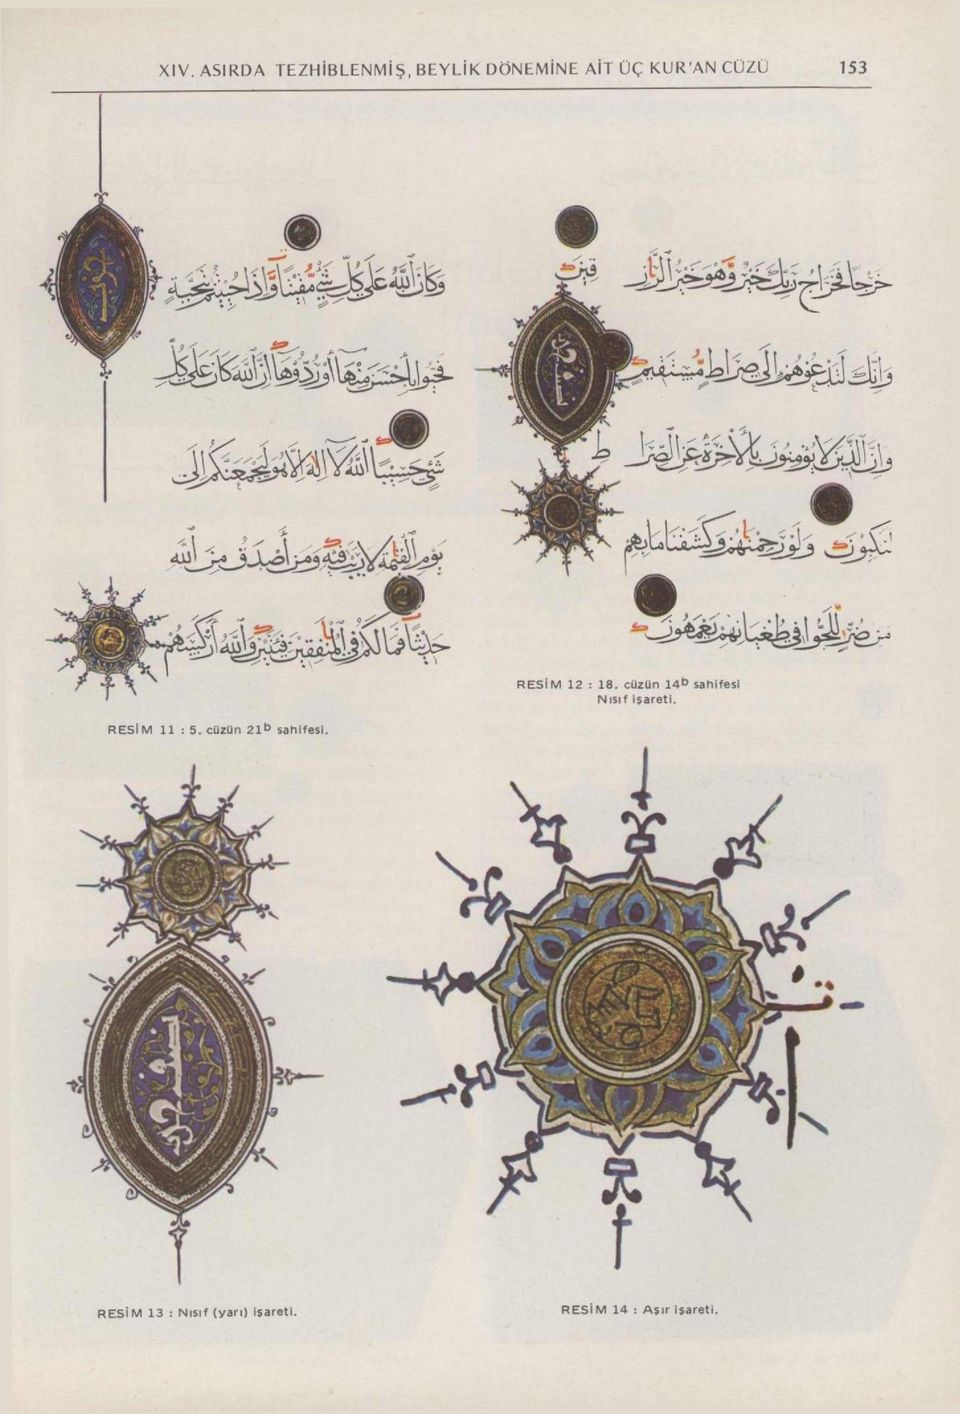 XIV. ASIRDA TEZHİBLENMİŞ, BEYLİK DÖNEMİNE AİT ÜÇ KUR'AN CÜZÜ 153
وَكَانَ اللَّهُ عَلَى كُلِّ شَيْءٍ مُقِيتًا وَإِذَا حُيِّيتُمْ بِتَحِيَّةٍ
فَحَيُّوا بِأَحْسَنَ مِنْهَا أَوْ رُدُّوهَا إِنَّ اللَّهَ كَانَ عَلَى كُلِّ
شَيْءٍ حَسِيبًا اللَّهُ لَا إِلَهَ إِلَّا هُوَ لَيَجْمَعَنَّكُمْ إِلَى
يَوْمِ الْقِيمَةِ لَا رَيْبَ فِيهِ وَمَنْ أَصْدَقُ مِنَ اللَّهِ
حَدِيثًا فَمَا لَكُمْ فِي الْمُنْفِقِينَ فِئَتَيْنِ وَاللَّهُ أَرْكَسَهُمْ
RESİM 11 : 5. cüzün 21b sahifesi.
خَرْجًا فَخَرَاجُ رَبِّكَ خَيْرٌ وَهُوَ خَيْرُ الرَّازِ
قِينَ
وَإِنَّكَ لَتَدْعُوهُمْ إِلَى صِرَاطٍ مُسْتَقِيمٍ
وَإِنَّ الَّذِينَ لَا يُؤْمِنُونَ بِالْآخِرَةِ عَنِ الصِّرَا
ط
لَنَكِبُونَ وَلَوْ رَحِمْنَهُمْ وَكَشَفْنَا مَا بِهِمْ
مِنْ ضُرٍّ لَلَجُّوا فِي طُغْيَانِهِمْ يَعْمَهُونَ
RESİM 12 : 18. cüzün 14b sahifesi
Nısıf işareti.
RESİM 13 : Nısıf (yarı) işareti.
RESİM 14 : Aşır işareti.